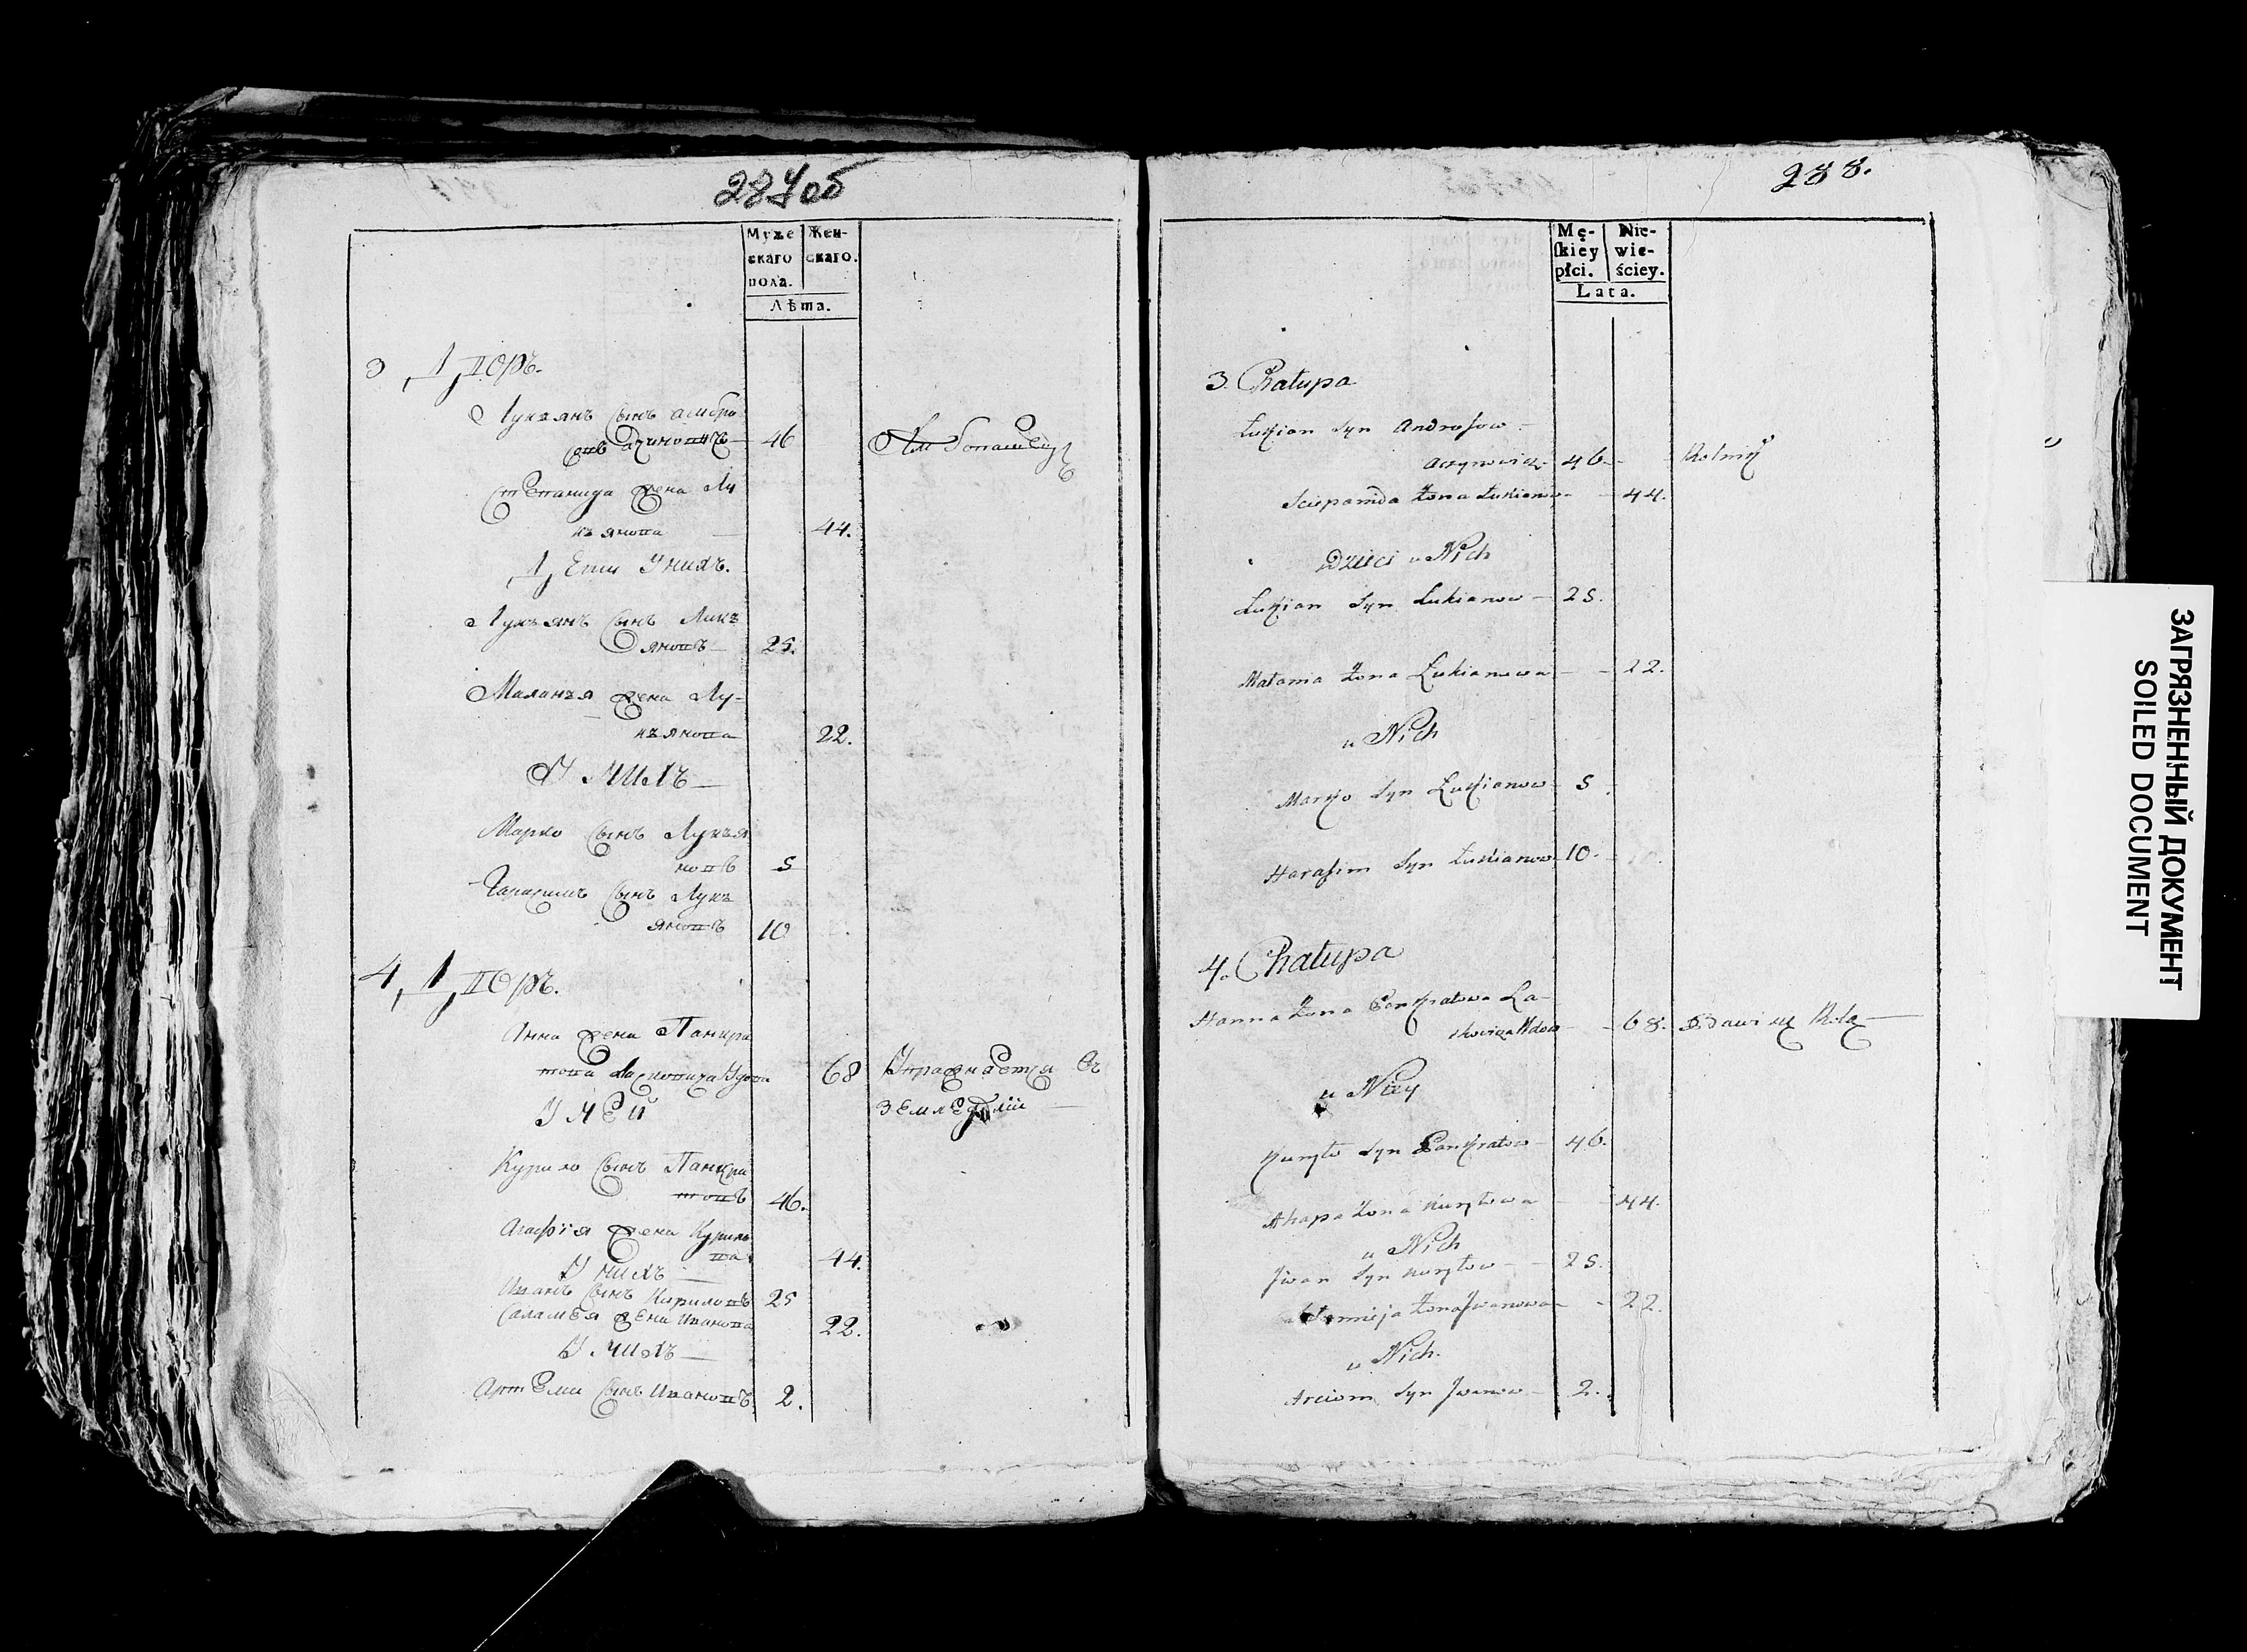 287 об
Муже
скаго
пола.
Жен-
скаго.
Лѣта.
3 Дворъ.
Лукьянъ Сынъ
46
Степанида Жена Лу
кьянова 44.
Дѣти Унихъ.
Лукьянъ Сынъ Лукь
яновъ 25.
Маланья Жена Лу-
кьянова 22.
У нихъ
Марко Сынъ Лукья
новъ 5
Гарасимъ Сынъ Лукь
яновъ 10
4 Дворъ.
Анна Жена Панкра
това Вдова 68 Упражняется Въ
У ней земледѣлiи
Курило Сынъ Панкра
товъ 46.
Агафiя Жена Курило
ва 44.
У нихъ
Иванъ Сынъ Куриловъ 25
Саламея Жена Иванова 22.
У нихъ
Артеми Сынъ Ивановъ 2.
288.
Mę-
skiey
płci.
Nie-
wie-
ściey.
Lata.
3. Chałupa
Łukjan Syn Androsow
46 Rolnik
Sciepanida Żona Łukianowa 44.
Dzieci u Nich
Łukjan Syn Łukianow 25.
Małania Żona Łukianowa 22.
u Nich
Marko Syn Łukjanow 5
Harasim Syn Łukianow 10.
4. Chałupa
Hanna Żona Pankratowa La-
skowiczka Wdowa 68. Bawi się Rolą
u Niey
Kuryło Syn Pankratow 46.
Ahapa Żona Kuryłowa 44.
u Nich
Jwan Syn Kuryłow 25.
Żona Jwanowa 22.
u Nich.
Arciom Syn Jwanow 2.
ЗАГРЯЗНЕННЫЙ ДОКУМЕНТ
SOILED DOCUMENT